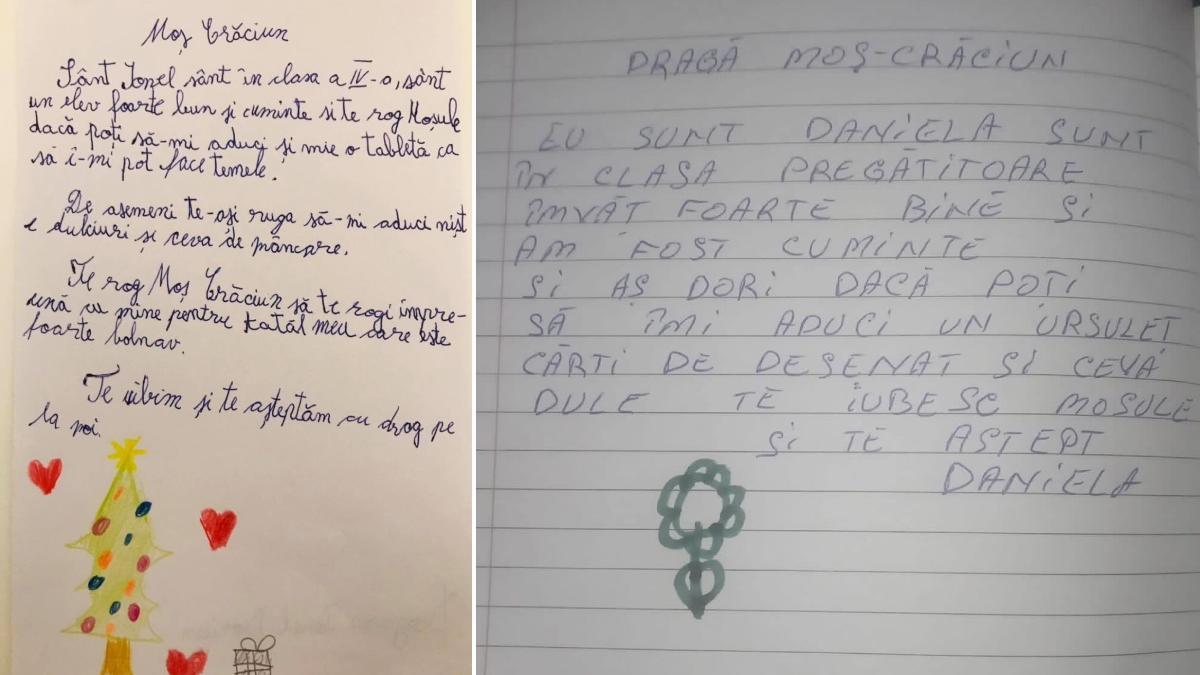 Moș Crăciun
Sânt Ionel sânt în clasa a IV-a, sânt
un elev foarte bun și cuminte si te rog Moșule
dacă poți să-mi aduci și mie o tabletă ca
să î-mi pot face temele.
De asemeni te-ași ruga să-mi aduci nișt
e dulciuri și ceva de mâncare.
Te rog Moș Crăciun să te rogi împre-
ună cu mine pentru tatăl meu care este
foarte bolnav.
Te iubim și te așteptăm cu drag pe
la noi.
DRAGĂ MOȘ-CRĂCIUN
EU SUNT DANIELA SUNT
ÎN CLASA PREGĂTITOARE
ÎMVĂȚ FOARTE BINE ȘI
AM FOST CUMINTE
ȘI AȘ DORI DACĂ POȚI
SĂ ÎMI ADUCI UN URSULEȚ
CĂRȚI DE DESENAT ȘI CEVA
DULE TE IUBESC MOȘULE
ȘI TE AȘTEPT
DANIELA